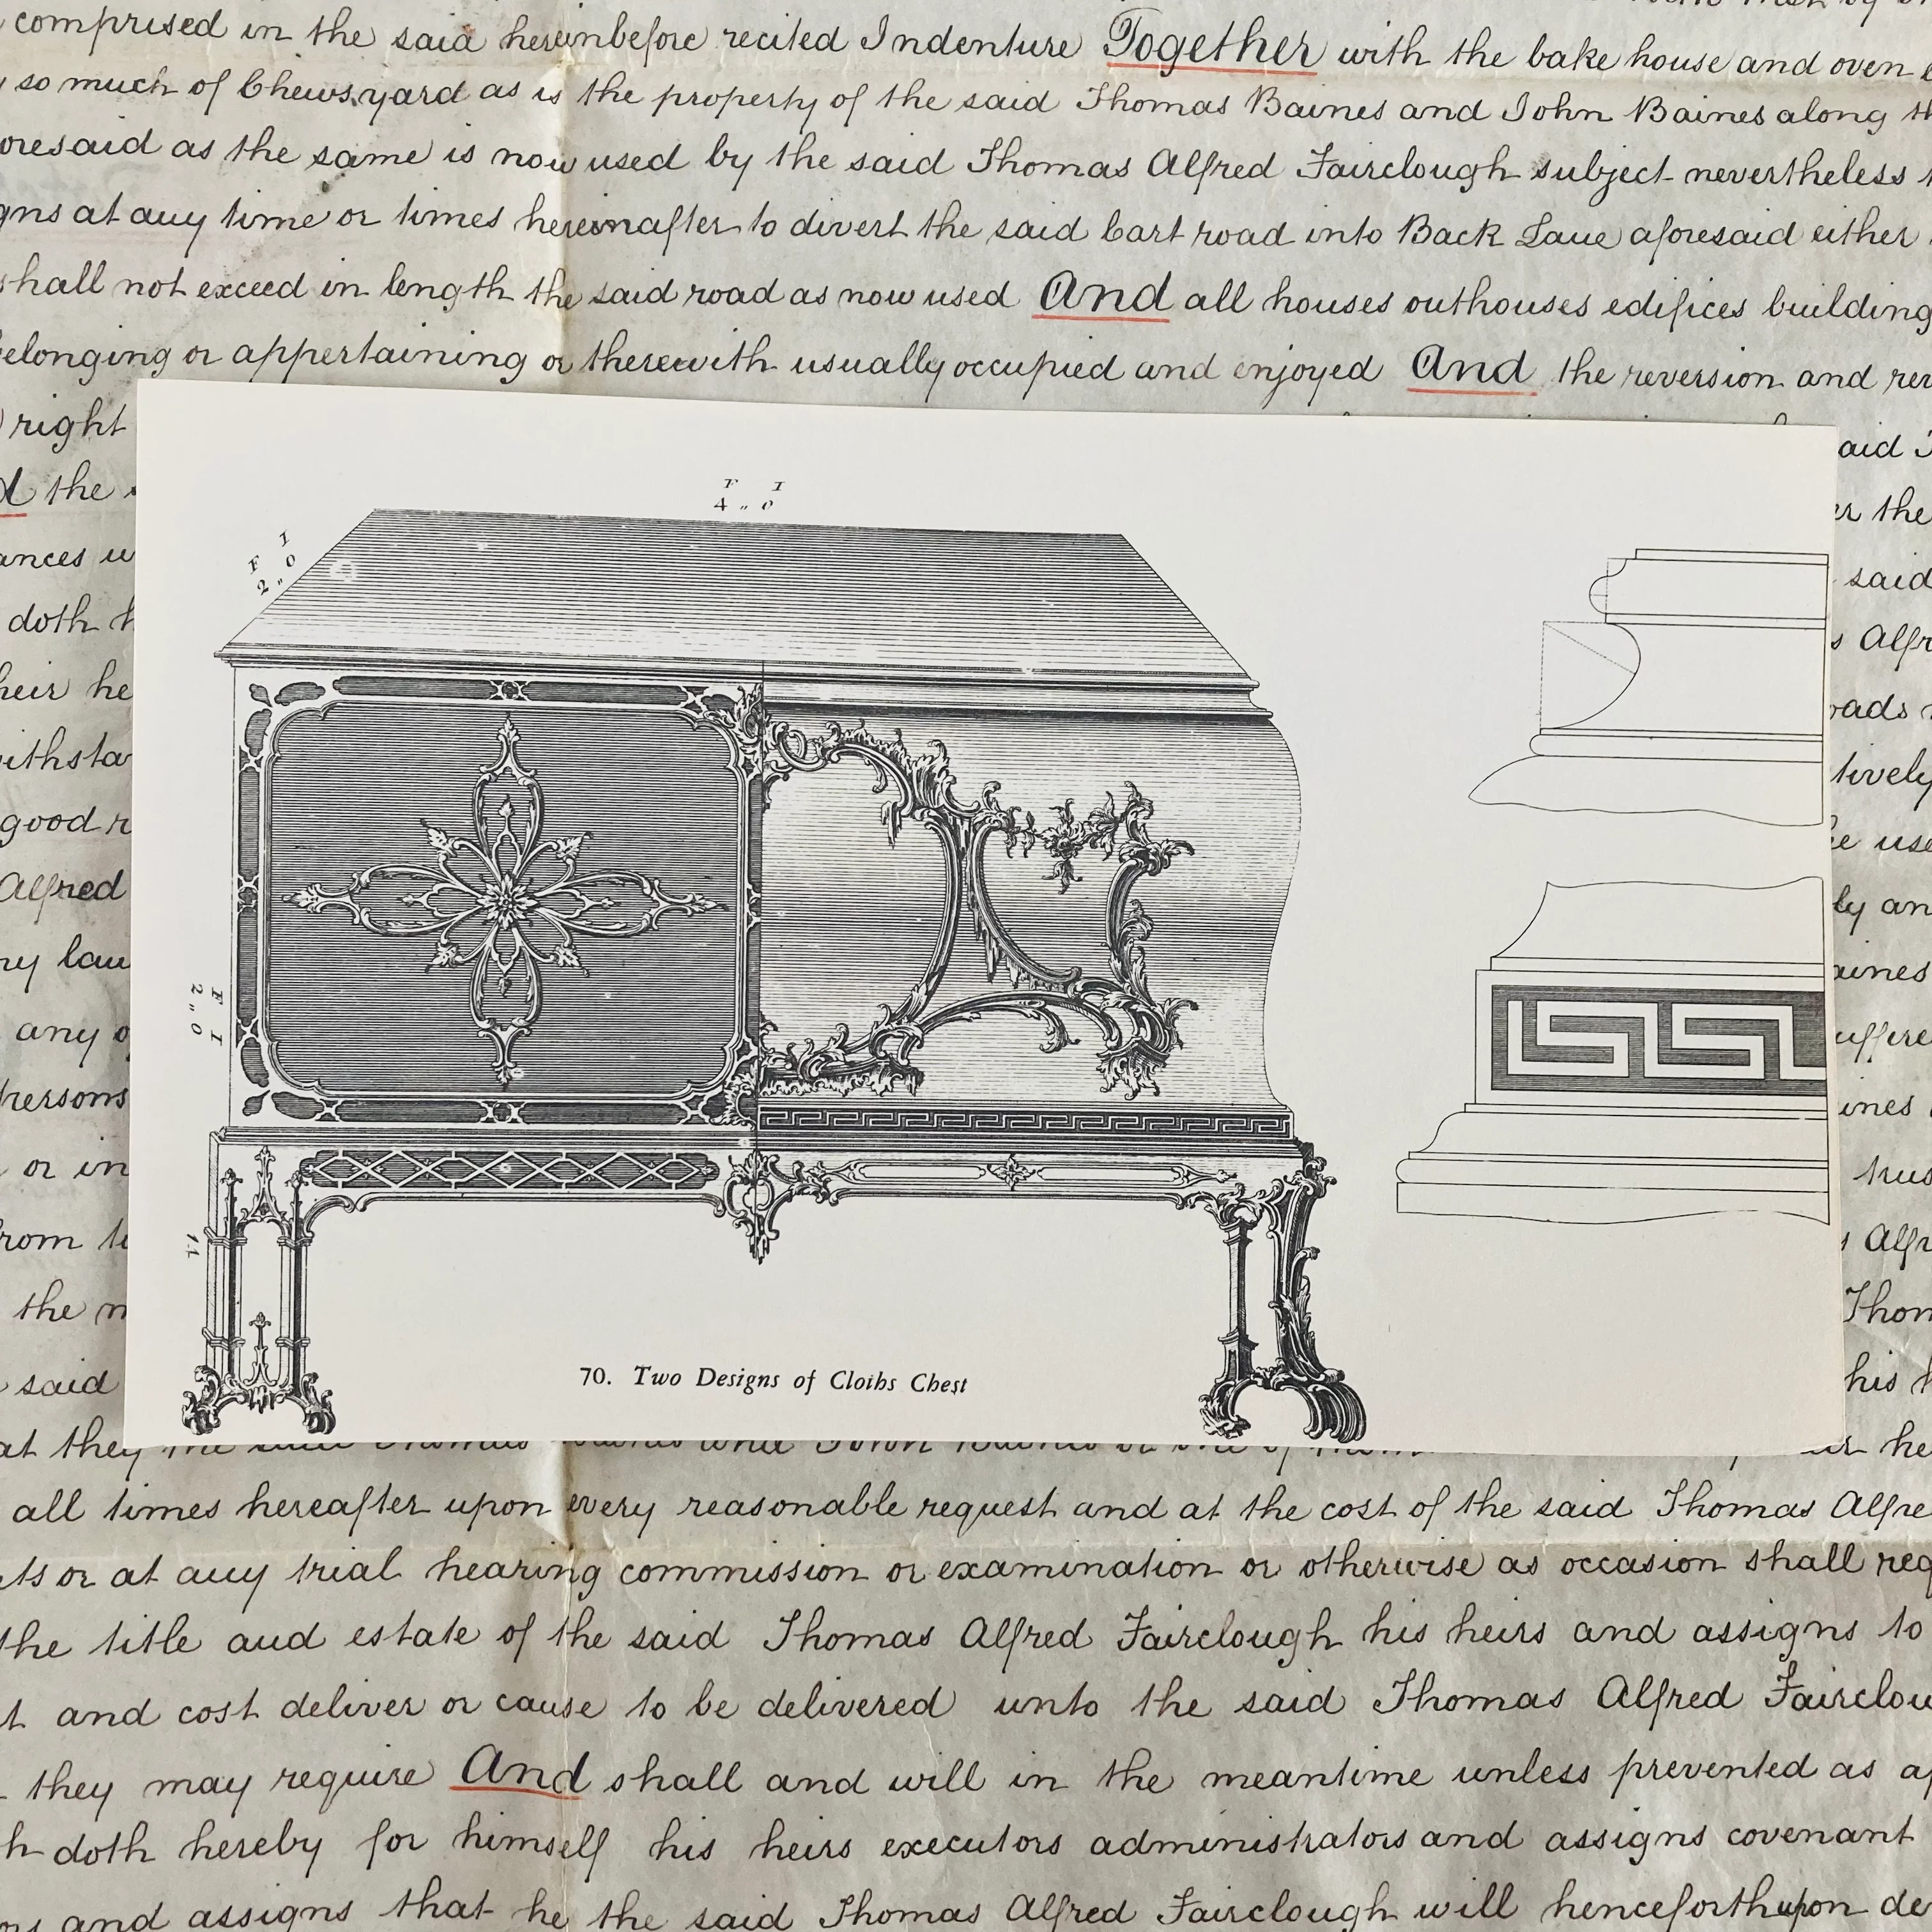 comprised in the said hereinbefore recited Indenture Together with the bake house and oven
so much of Chews yard as is the property of the said Thomas Baines and John Baines along
oresaid as the same is now used by the said Thomas Alfred Fairclough subject nevertheless
gns at any time or times hereinafter to divert the said Cart road into Back Lane aforesaid either
shall not exceed in length the said road as now used And all houses outhouses edifices building
elonging or appertaining or therewith usually occupied and enjoyed And the reversion and
right
aid
the
er the
ances
said
doth
Alfr
heir he
oads
ithsta
tively
good
use
Alfred
ly an
ry law
aines
any
uffere
persons
ines
or in
trus
rom
Alfr
the
Thom
said
his
F I
4 " 0
F I
2 " 0
F I
2 " 0
11
70. Two Designs of Cloths Chest
at they the said Thomas Baines and John Baines or one of them he
all times hereafter upon every reasonable request and at the cost of the said Thomas Alfre
ts or at any trial hearing commission or examination or otherwise as occasion shall req
the title and estate of the said Thomas Alfred Fairclough his heirs and assigns to
t and cost deliver or cause to be delivered unto the said Thomas Alfred Fairclou
they may require And shall and will in the meantime unless prevented as
h doth hereby for himself his heirs executors administrators and assigns covenant
ors and assigns that he the said Thomas Alfred Fairclough will henceforth upon de